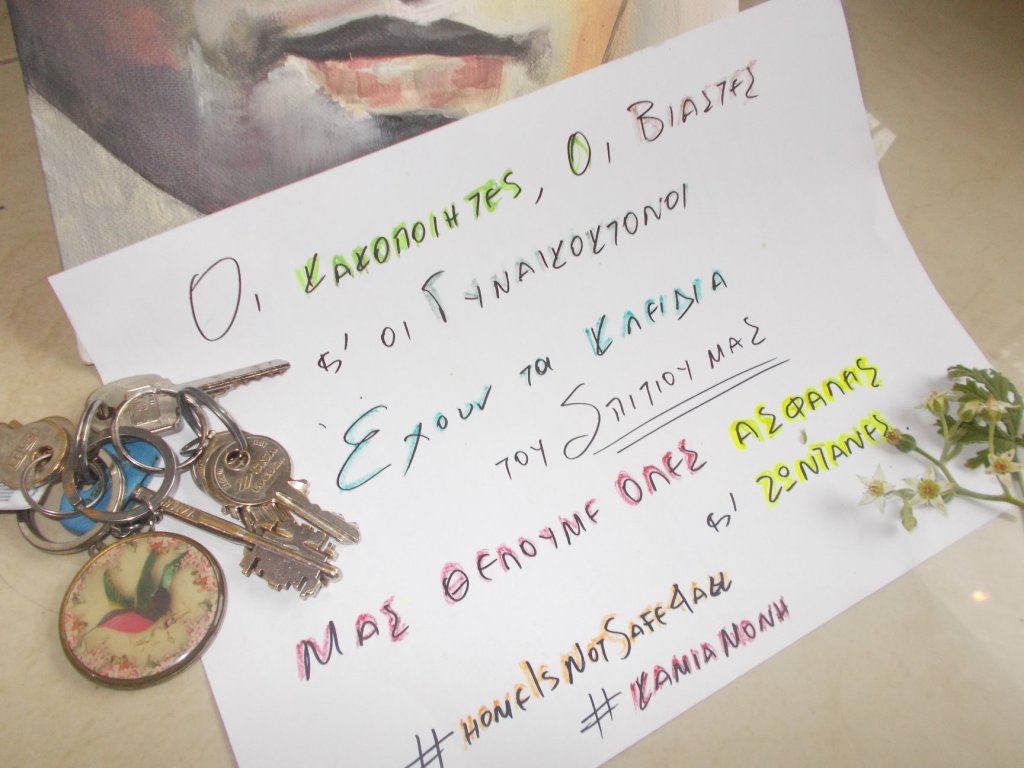 Οι ΚΑΚΟΠΟΙΗΤΕΣ, Οι ΒΙΑΣΤΕΣ
κ' οι ΓΥΝΑΙΚΟΚΤΟΝΟΙ
Έχουν τα ΚΛΕΙΔΙΑ
του ΣΠΙΤΙΟΥ ΜΑΣ
ΜΑΣ ΘΕΛΟΥΜΕ ΟΛΕΣ ΑΣΦΑΛΑΣ
κ' ΖΩΝΤΑΝΕΣ
#HOMEISNOTSAFE4all
#ΚΑΜΙΑΜΟΝΗ